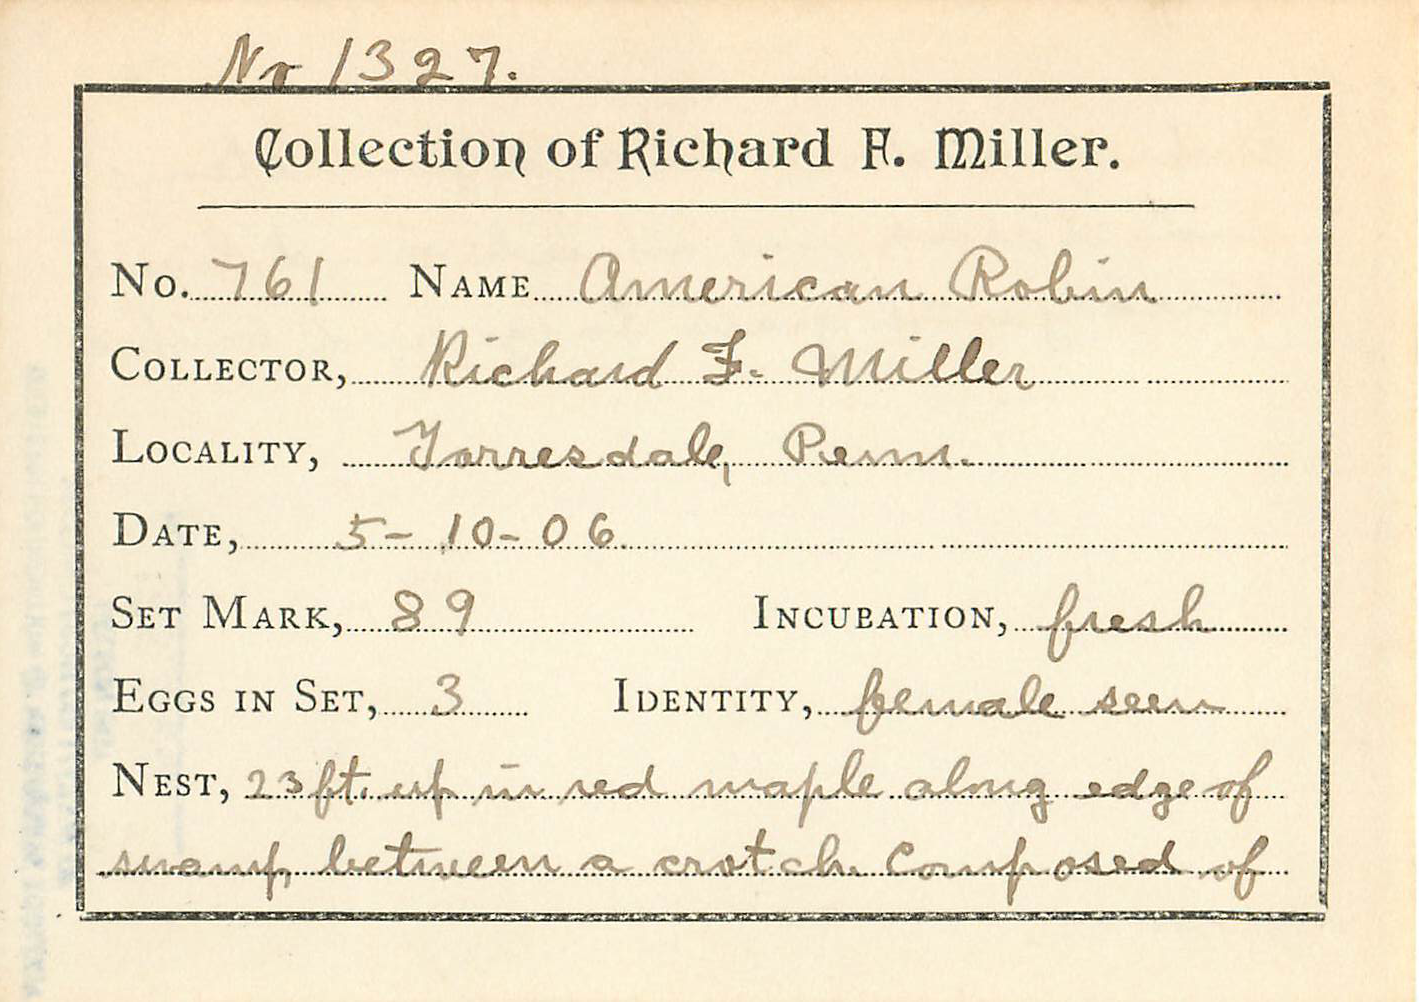 Nr 1327.
Collection of Richard F. Miller.
No. 761 Name American Robin
Collector, Richard F. Miller
Locality, Torresdale, Penn.
Date, 5-10-06.
Set Mark, 89 Incubation, fresh
Eggs in Set, 3 Identity, female seen
Nest, 23 ft. up in red maple along edge of
swamp, between a crotch. Composed of